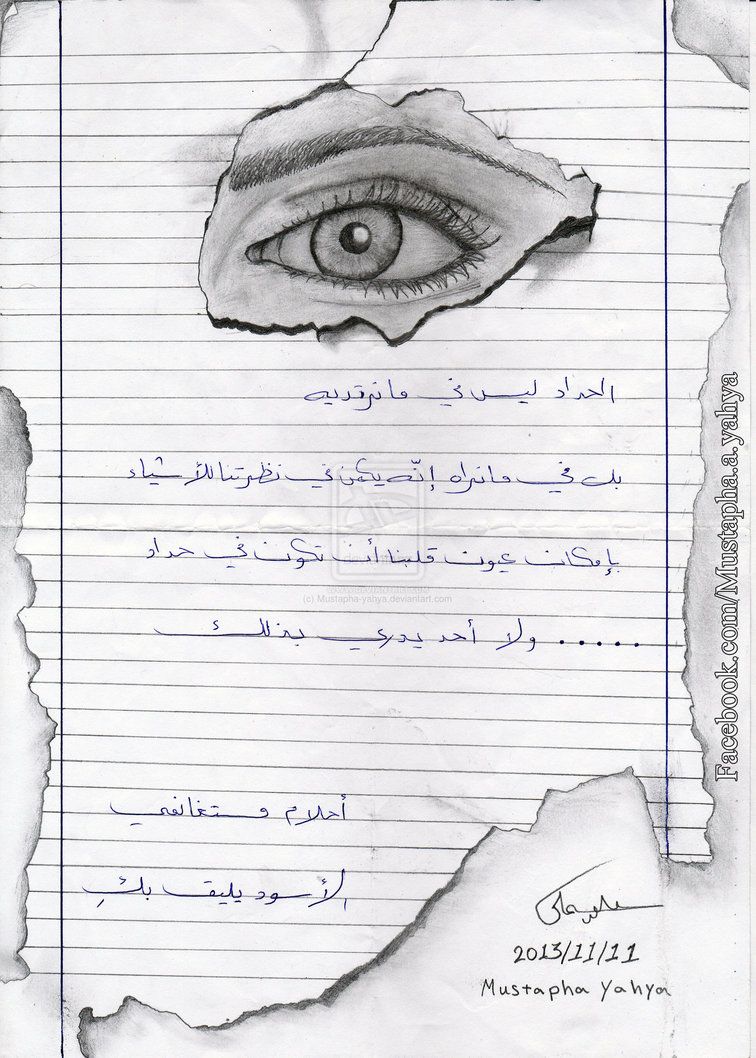 الحداد ليس في ما نرتديه
بل في ما نراه إنّه يكمن في نظرتنا للأشياء
بإمكان عيون قلبنا أن تكون في حداد
..... ولا أحد يدري بذلك
أحلام مستغانمي
الأسود يليق بكِ
2013/11/11
Mustapha Yahya
Facebook.com/Mustapha.a.yahya
(c) Mustapha-yahya.deviantart.com